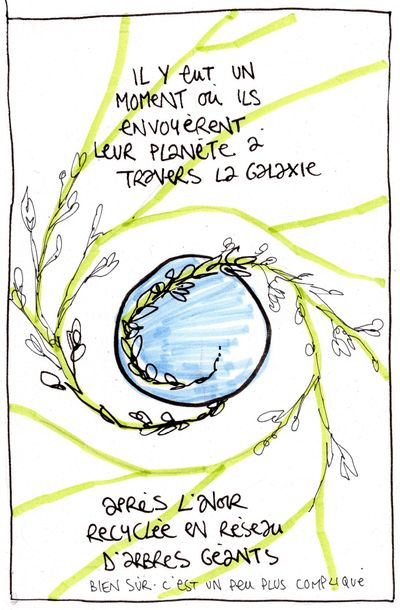 IL Y EUT UN
MOMENT OÙ ILS
ENVOYÈRENT
LEUR PLANÈTE À
TRAVERS LA GALAXIE
APRÈS L'AVOIR
RECYCLÉE EN RÉSEAU
D'ARBRES GÉANTS
BIEN SÛR. C'EST UN PEU PLUS COMPLIQUÉ